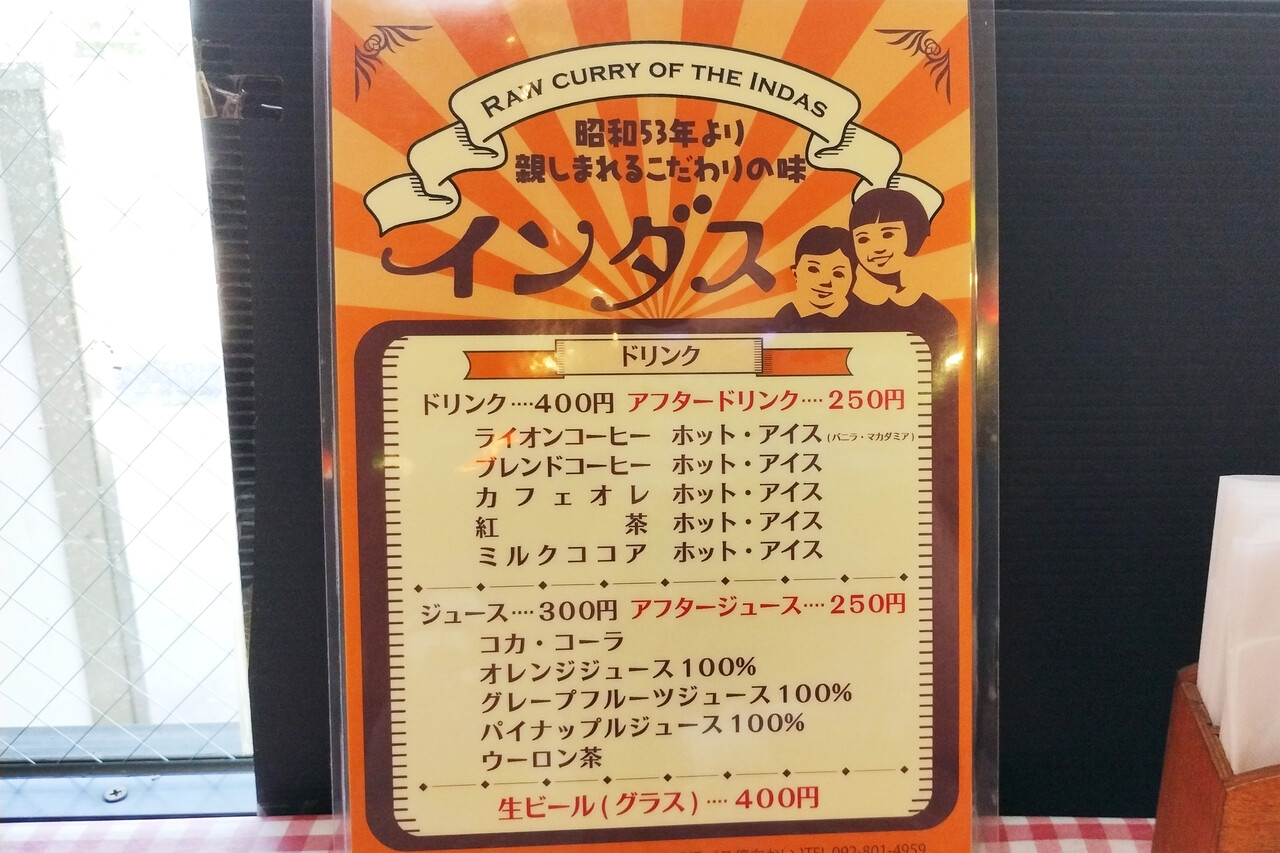 RAW CURRY OF THE INDAS
昭和53年より
親しまれるこだわりの味
インダス
ドリンク
ドリンク‥‥400円 アフタードリンク‥‥250円
ライオンコーヒー ホット・アイス(バニラ・マカダミア)
ブレンドコーヒー ホット・アイス
カフェオレ ホット・アイス
紅茶 ホット・アイス
ミルクココア ホット・アイス
ジュース‥‥300円 アフタージュース‥‥250円
コカ・コーラ
オレンジジュース100%
グレープフルーツジュース100%
パイナップルジュース100%
ウーロン茶
生ビール(グラス)‥‥400円
TEL 092-801-4959